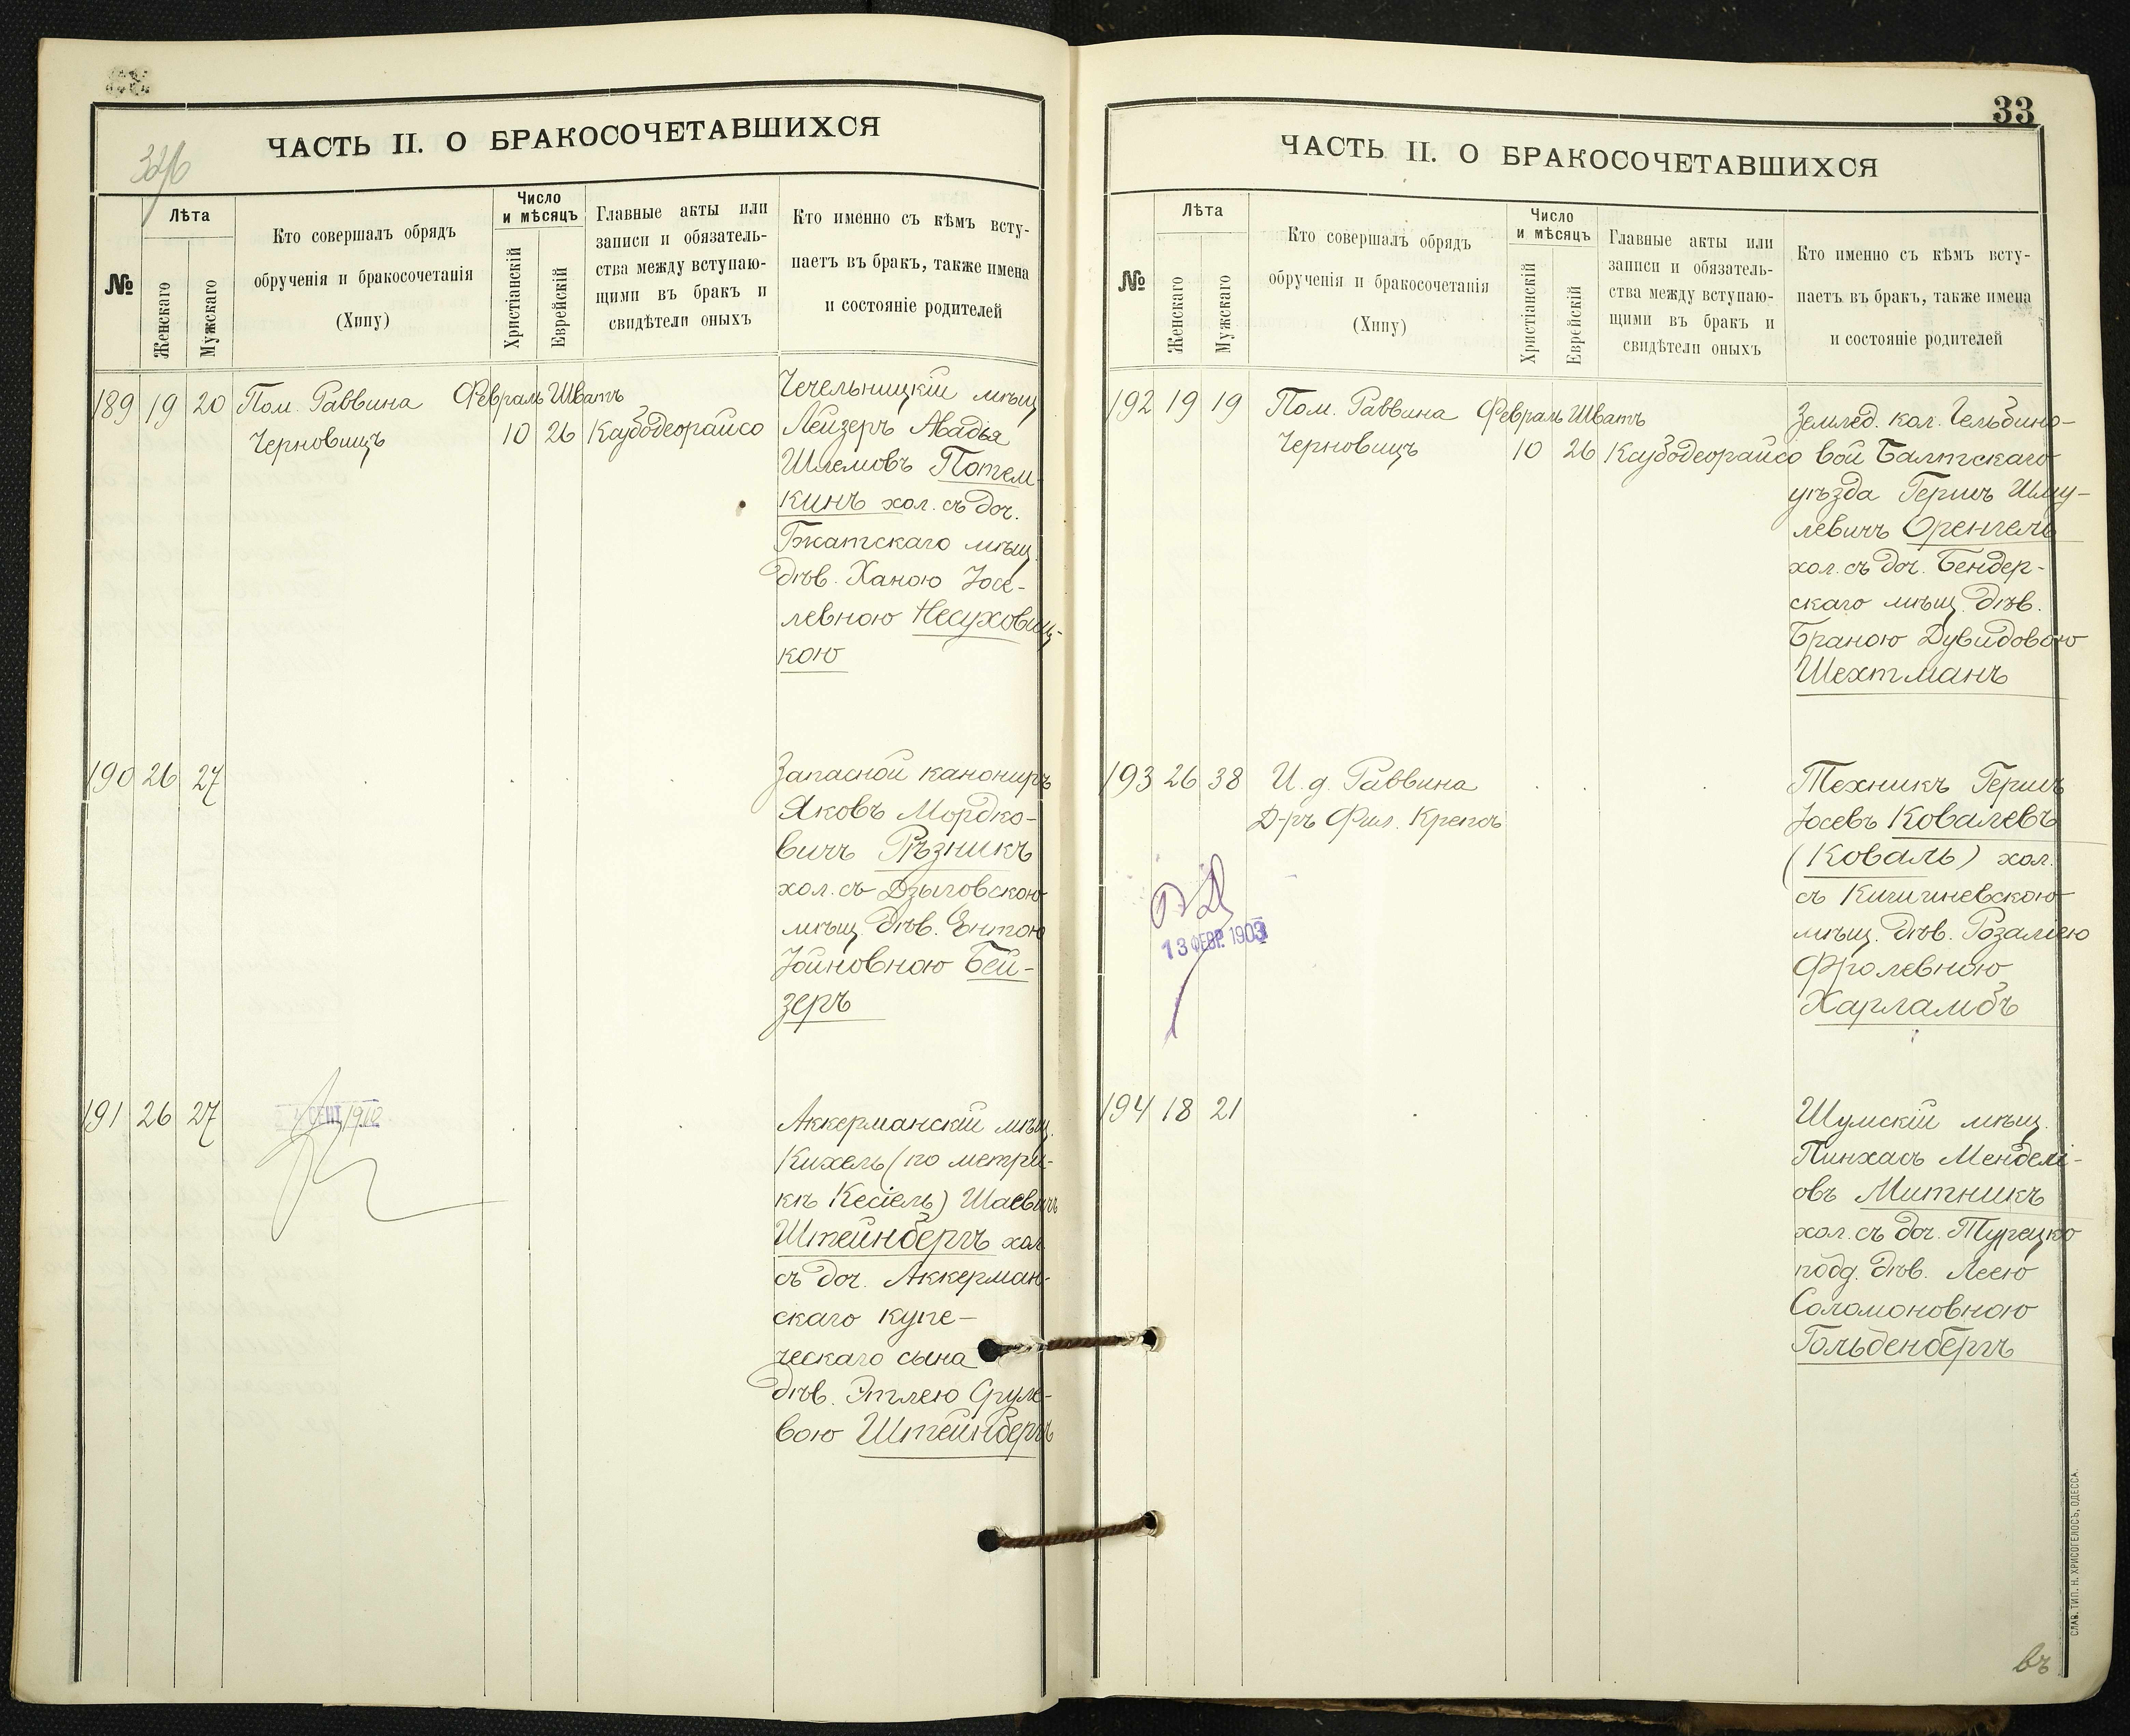 ЧАСТЬ II. О БРАКОСОЧЕТАВШИХСЯ
№
Лѣта
Женскаго
Мужскаго
Кто совершалъ обрядъ
обрученія и бракосочетанія
(Хипу)
Число
и мѣсяцъ
Христіанскій
Еврейскій
Главные акты или
записи и обязатель-
ства между вступаю-
щими въ бракъ и
свидѣтели оныхъ
Кто именно съ кѣмъ всту-
паетъ въ бракъ, также имена
и состояніе родителей
189 19 20 Пом. Раввина Февраль Шватъ
Черновицъ 10 26 Каубодеорайсо
Чечельницкій мѣщ
Лейзеръ Авадья
Шлемовъ Потем-
кинъ хол. съ доч.
Гжатскаго мѣщ.
дѣв. Ханою Іосе-
левною Несуховиц-
кою
190 26 27
Запасной канониръ
Яковъ Мордко-
вичъ Рѣзникъ
хол. съ Дзыговскою
мѣщ. дѣв. Ентою
Іойновною Бей-
зеръ
191 26 27
СЕНТ 1912
Аккерманскій мѣщ.
Кихель (по метри-
кѣ Кесіель) Шаевичъ
Штейнбергъ хол
съ доч. Аккерман-
скаго купе-
ческаго сына
дѣв. Этлею Сруле-
вою Штейнбергъ
33
ЧАСТЬ II. О БРАКОСОЧЕТАВШИХСЯ
№
Лѣта
Женскаго
Мужскаго
Кто совершалъ обрядъ
обрученія и бракосочетанія
(Хипу)
Число
и мѣсяцъ
Христіанскій
Еврейскій
Главные акты или
записи и обязатель-
ства между вступаю-
щими въ бракъ и
свидѣтели оныхъ
Кто именно съ кѣмъ всту-
паетъ въ бракъ, также имена
и состояніе родителей
192 19 19 Пом. Раввина Февраль Шватъ
Черновицъ 10 26 Каубодеорайсо
Землед. кол. Гельбино-
вой Балтскаго
уѣзда Гершъ Шму-
левичъ Оренгель
хол. съ доч. Бендер-
скаго мѣщ. дѣв.
Браною Дувидовою
Шехтманъ
193 26 38 И. д. Раввина
Д-ръ Фил. Крепсъ
13 ФЕВР. 1903
Техникъ Гершъ
Іосевъ Ковалевъ
(Коваль) хол.
съ Кишиневскою
мѣщ. дѣв. Розаліею
Фролевною
Харламбъ
194 18 21
Шумскій мѣщ.
Пинхасъ Менделі-
овъ Митникъ
хол. съ доч. Турецко
подд. дѣв. Леею
Соломоновною
Гольденбергъ
СЛАВ. ТИП. Н. ХРИСОГЕЛОСЪ, ОДЕССА.
въ